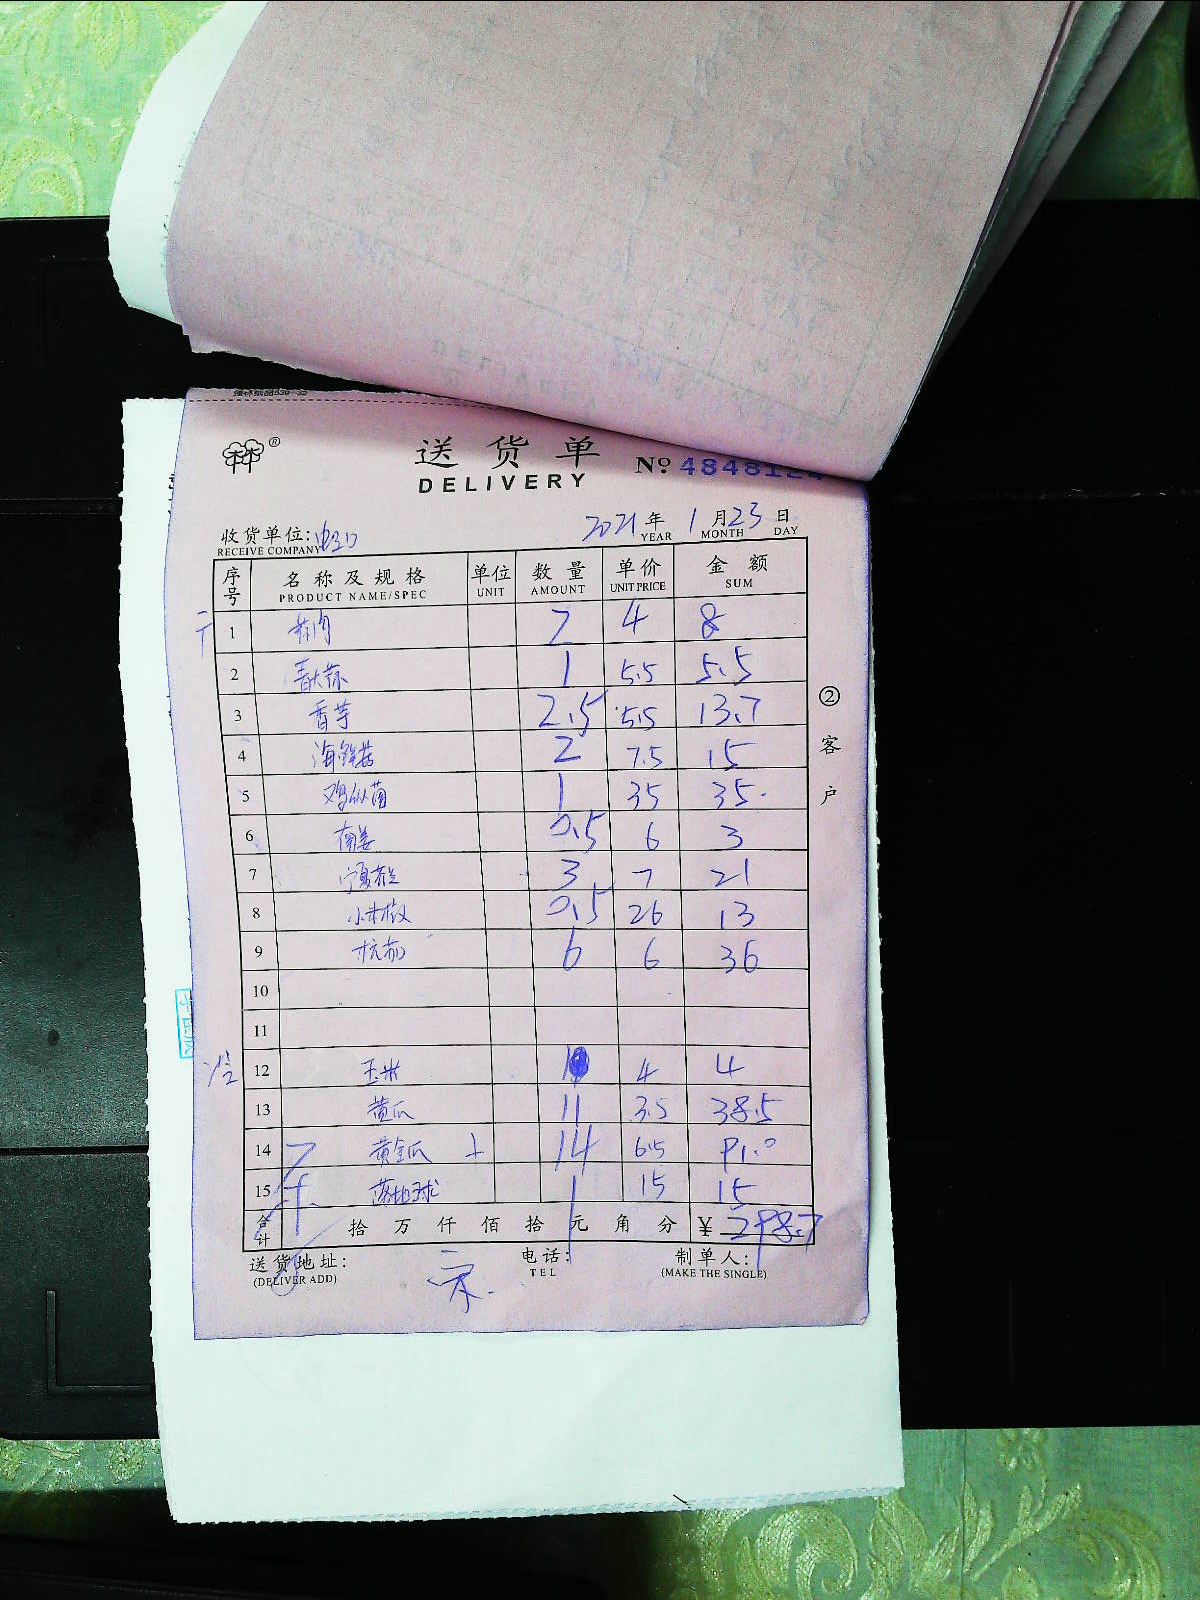 送货单
DELIVERY
№ 484812
收货单位:
RECEIVE COMPANY
2021 年 1 月 23 日
YEAR MONTH DAY
序号 名称及规格 单位 数量 单价 金额
PRODUCT NAME/SPEC UNIT AMOUNT UNIT PRICE SUM
1 2 4 8
2 1 5.5 5.5
3 香芋 2.5 5.5 13.7
4 海鲜菇 2 7.5 15
5 鸡枞菌 1 35 35.
6 南姜 0.5 6 3
7 宁夏菜心 3 7 21
8 小米椒 0.5 26 13
9 杭茄 6 6 36
10
11
12 玉米 1 4 4
13 黄瓜 11 3.5 38.5
14 黄金瓜 14 6.5 91.0
15 1 15 15
合计 拾 万 仟 佰 拾 元 角 分 ¥ 298.7
送货地址: 电话: 制单人:
(DELIVER ADD) TEL (MAKE THE SINGLE)
② 客户